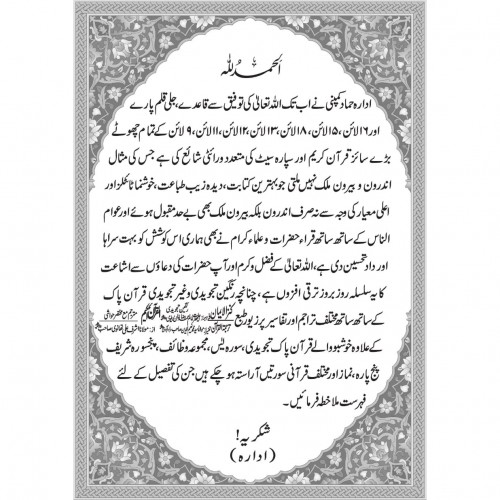 الحمد للہ
ادارہ حماد کمپنی نے اب تک اللہ تعالیٰ کی توفیق سے قاعدے، جلی قلم پارے
اور ۱۶ لائن، ۱۵ لائن، ۱۸ لائن، ۱۳ لائن، ۱۲ لائن، ۱۱ لائن، ۹ لائن کے تمام چھوٹے
بڑے سائز قرآن کریم اور سپارہ سیٹ کی متعدد ورائٹی شائع کی ہے جس کی مثال
اندرون و بیرون ملک نہیں ملتی جو بہترین کتابت، دیدہ زیب طباعت، خوشنما ٹائٹلز اور
اعلیٰ معیار کی وجہ سے نہ صرف اندرون بلکہ بیرون ملک بھی بے حد مقبول ہوئے اور عوام
الناس کے ساتھ ساتھ قراء حضرات و علماء کرام نے بھی ہماری اس کوشش کو بہت سراہا
اور داد تحسین دی ہے، اللہ تعالیٰ کے فضل و کرم اور آپ حضرات کی دعاؤں سے اشاعت
کا یہ سلسلہ روز بروز ترقی افزوں ہے، چنانچہ رنگین تجویدی و غیر تجویدی قرآن پاک
کے ساتھ ساتھ مختلف تراجم اور تفاسیر زیور طبع کنزالایمان
کے علاوہ خوشبو والے قرآن پاک تجویدی، سورہ یٰس، مجموعہ وظائف، پنجسورہ شریف
پنج پارہ، نماز اور مختلف قرآنی سورتیں آراستہ ہو چکے ہیں جن کی تفصیل کے لئے
فہرست ملاحظہ فرمائیں۔
شکریہ!
(ادارہ)